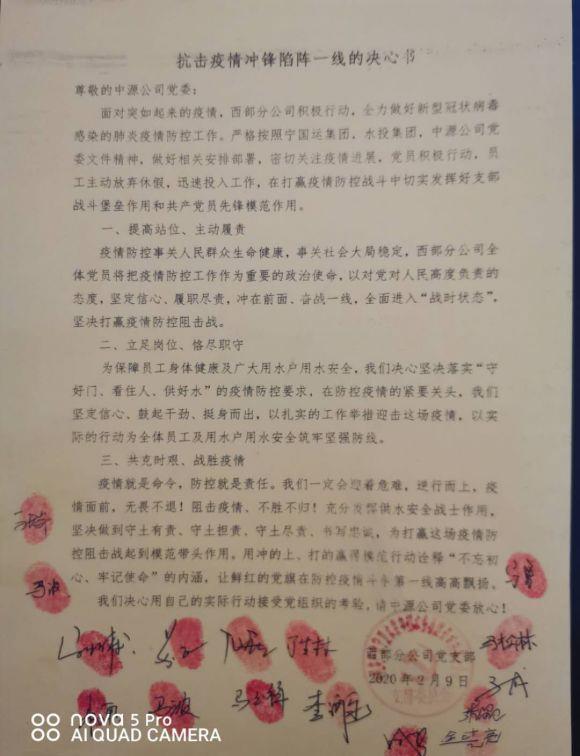 抗击疫情冲锋陷阵一线的决心书
尊敬的中源公司党委：
面对突如起来的疫情，西部分公司积极行动，全力做好新型冠状病毒
感染的肺炎疫情防控工作。严格按照宁国运集团，水投集团，中源公司党
委文件精神，做好相关安排部署，密切关注疫情进展，党员积极行动，员
工主动放弃休假，迅速投入工作，在打赢疫情防控战斗中切实发挥好支部
战斗堡垒作用和共产党员先锋模范作用。
一、提高站位、主动履责
疫情防控事关人民群众生命健康，事关社会大局稳定，西部分公司全
体党员将把疫情防控工作作为重要的政治使命，以对党对人民高度负责的
态度，坚定信心、履职尽责，冲在前面、奋战一线，全面进入“战时状态”，
坚决打赢疫情防控阻击战。
二、立足岗位、恪尽职守
为保障员工身体健康及广大用水户用水安全，我们决心坚决落实“守
好门、看住人、供好水”的疫情防控要求，在防控疫情的紧要关头，我们
坚定信心、鼓起干劲、挺身而出，以扎实的工作举措迎击这场疫情，以实
际的行动为全体员工及用水户用水安全筑牢坚强防线。
三、共克时艰、战胜疫情
疫情就是命令，防控就是责任。我们一定会迎着危难，逆行而上，疫
情面前，无畏不退！阻击疫情、不胜不归！充分发挥供水安全战士作用，
坚决做到守土有责、守土担责、守土尽责、书写忠诚，为打赢这场疫情防
控阻击战起到模范带头作用。用冲的上、打的赢得模范行动诠释“不忘初
心、牢记使命”的内涵，让鲜红的党旗在防控疫情斗争第一线高高飘扬。
我们决心用自己的实际行动接受党组织的考验，请中源公司党委放心！
马波
西部分公司党支部
2020年2月9日
马波
nova 5 Pro
AI QUAD CAMERA